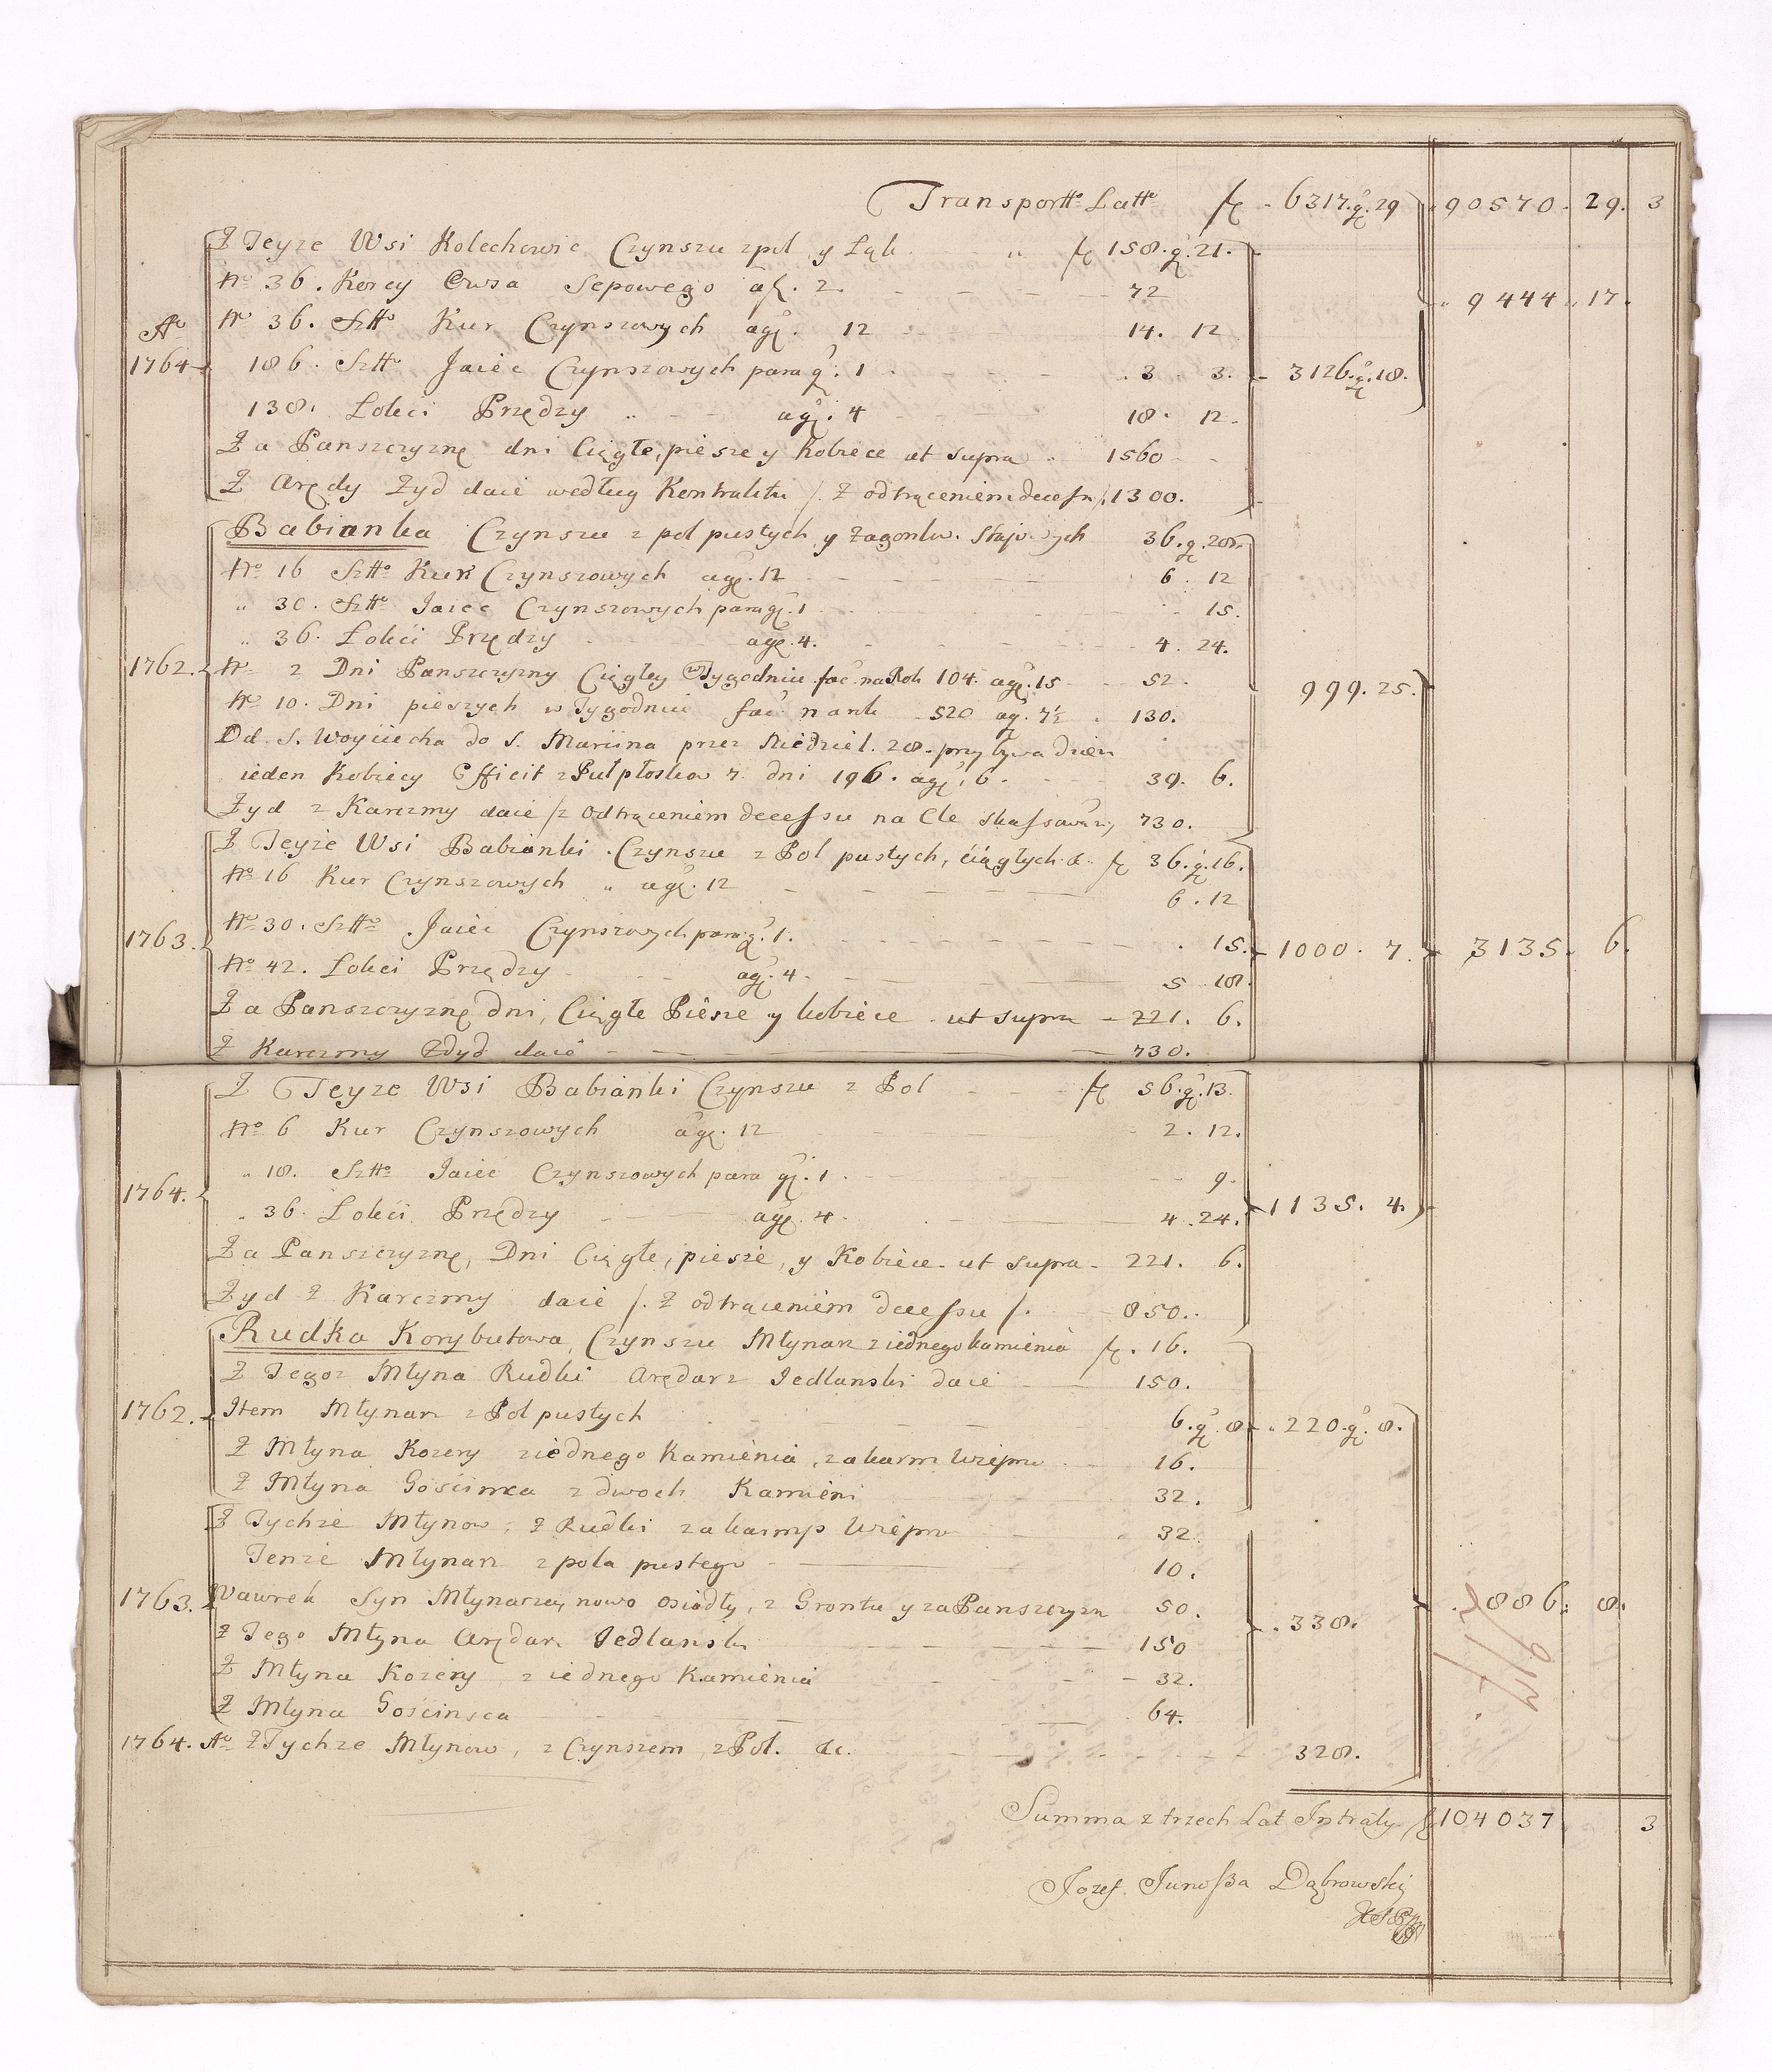 Transportt Latt fl 6317. gr 29 90570. 29. 3
Z Teyze Wsi Kolechowic Czynszu z pol y Łąk fl 158. gr 21.
No 36. Korcy Owsa Sepowego a fl. 2 72
9444. 17.
Ao No 36. Sztt Kur Czynszowych a gr. 12 14. 12
1764 186. Sztt Jaiec Czynszowych para gr. 1 3 3. 3126. gr. 18.
138. Łokci Przędzy a gr. 4 18. 12.
Za Panszczyznę dni Ciągłe, piesze y Kobiece ut supra 1560
Z Arędy Zyd daie według Kontraktu /. Z odtrąceniem decessu /. 1300.
Babianka Czynszu z pol pustych y Zagonkow 36. gr. 20
No 16 Sztt Kur Czynszowych a gr. 12 6. 12
" 30. Sztt Jaiec Czynszowych para gr. 1 15.
" 36. Łokci Przędzy a gr. 4. 4. 24.
1762. No 2 Dni Panszczyzny Ciągłey w Tygodniu fac na Rok 104. a gr. 15 52.
999. 25.
No 10. Dni pieszych w Tygodniu fac na rok 520 a gr. 7½ 130.
Od S. Woyciecha do S. Marcina przez Niedziel. 28. przybywa dzien
ieden Kobiecy Efficit z Puł płoska 7. dni 196. a gr. 6. 39. 6.
Zyd z Karczmy daie /z odtrąceniem decessu na Cle skassowany 730.
Z Teyże Wsi Babianki Czynszu z Pol pustych, ciągłych &. fl 36. gr. 16.
No 16 Kur Czynszowych " a gr. 12 6. 12
1763. No 30. Sztt Jaiec Czynszowych para gr. 1. 15. 1000. 7. 3135. 6.
No 42. Łokci Przędzy a gr. 4 5 18.
Za Panszczyznę dni, Ciągłe Piesze y kobiece ut supra 221. 6.
Z Karczmy Zyd daie 730.
Z Teyze Wsi Babianki Czynszu z Pol fl 56. gr. 13.
No 6 Kur Czynszowych a gr. 12 2. 12.
" 18. Sztt Jaiec Czynszowych para gr. 1. 9.
1764. " 36. Łokci Przędzy a gr. 4. 4. 24. 1135. 4.
Za Panszczyznę, Dni Ciągłe, piesze, y Kobiece ut supra 221. 6.
Zyd Z Karczmy daie /. Z odtrąceniem decessu /. 850.
Rudka Korybutowa, Czynszu Młynarz z iednego kamienia fl. 16.
Z Tegoz Młyna Rudki Arędarz Jedlanski daie 150.
1762. Item Młynarz z Pol pustych 6. gr. 8 220. gr. 8.
Z Młyna Kozery z iednego Kamienia, za karm Wieprza 16.
Z Młyna Goscinca z dwoch Kamieni 32.
Z Tychze Młynow, Z Rudki za karmę Wieprza 32.
Tenze Młynarz z pola pustego 10.
1763. Wawrek Syn Młynarza, nowo osiadły, z Gruntu y za Panszczyznę 50. 338. 886. 8.
Z Tego Młyna Arędarz Jedlanski 150
Z Młyna Kozery z iednego Kamienia 32.
Z Młyna Goscinsca 64.
1764. Ao Z Tychze Młynow, z Czynszem, z Pol. &c. 328.
Summa z trzech Lat Intraty fl 104037 3
Jozef Junosza Dąbrowski